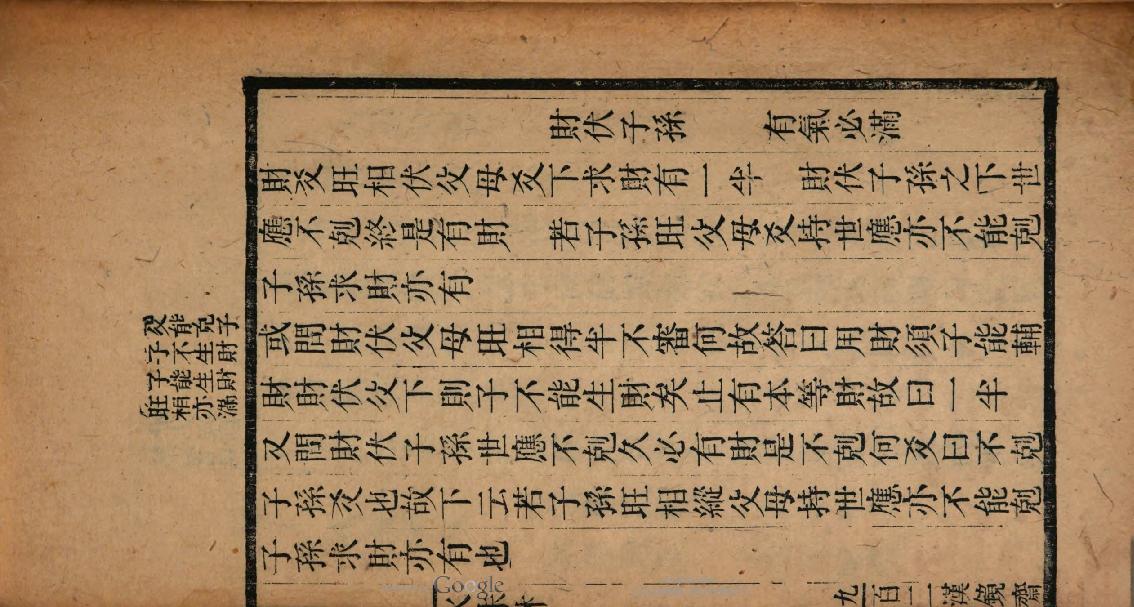 財伏子孫　有氣必滿
財爻旺相伏父母爻下求財有一半　財伏子孫之下世
應不剋終是有財　若子孫旺父母爻持世應亦不能剋
子孫求財亦有
父能克子
子不生財
子能生財
旺相亦滿
或問財伏父母旺相得半不審何故答曰用財須子能輔
財財伏父下則子不能生財矣止有本等財故曰一半
又問財伏子孫世應不剋久必有財是不剋何爻曰不剋
子孫爻也故下云若子孫旺相縱父母持世應亦不能剋
子孫求財亦有也
九百二漢鏡齋
Google